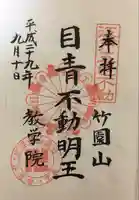 奉拝
竹園山
目青不動明王
教学院
平成二十九年
九月十日